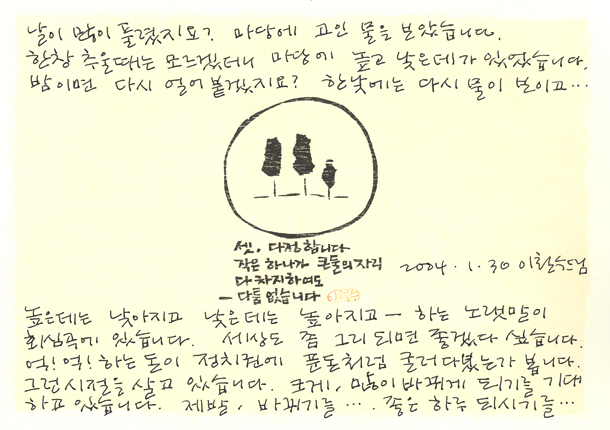 날이 많이 풀렸지요? 마당에 고인 물을 보았습니다.
한창 추울때는 모르겠더니 마당에 높고 낮은데가 있었습니다.
밤이면 다시 얼어 붙겠지요? 한낮에는 다시 물이 보이고…
셋. 다정합니다
작은 하나가 큰둘의 자리
다 차지하여도
— 다툼 없습니다
2004. 1. 30 이철수드림
높은데는 낮아지고 낮은데는 높아지고 — 하는 노랫말이
회심곡에 있습니다. 세상도 좀 그리 되면 좋겠다 싶습니다.
억! 억! 하는 돈이 정치권에 푼돈처럼 굴러다녔는가 봅니다.
그런 시절을 살고 있습니다. 크게, 많이 바뀌게 되기를 기대
하고 있습니다. 제발, 바뀌기를…. 좋은 하루 되시기를…